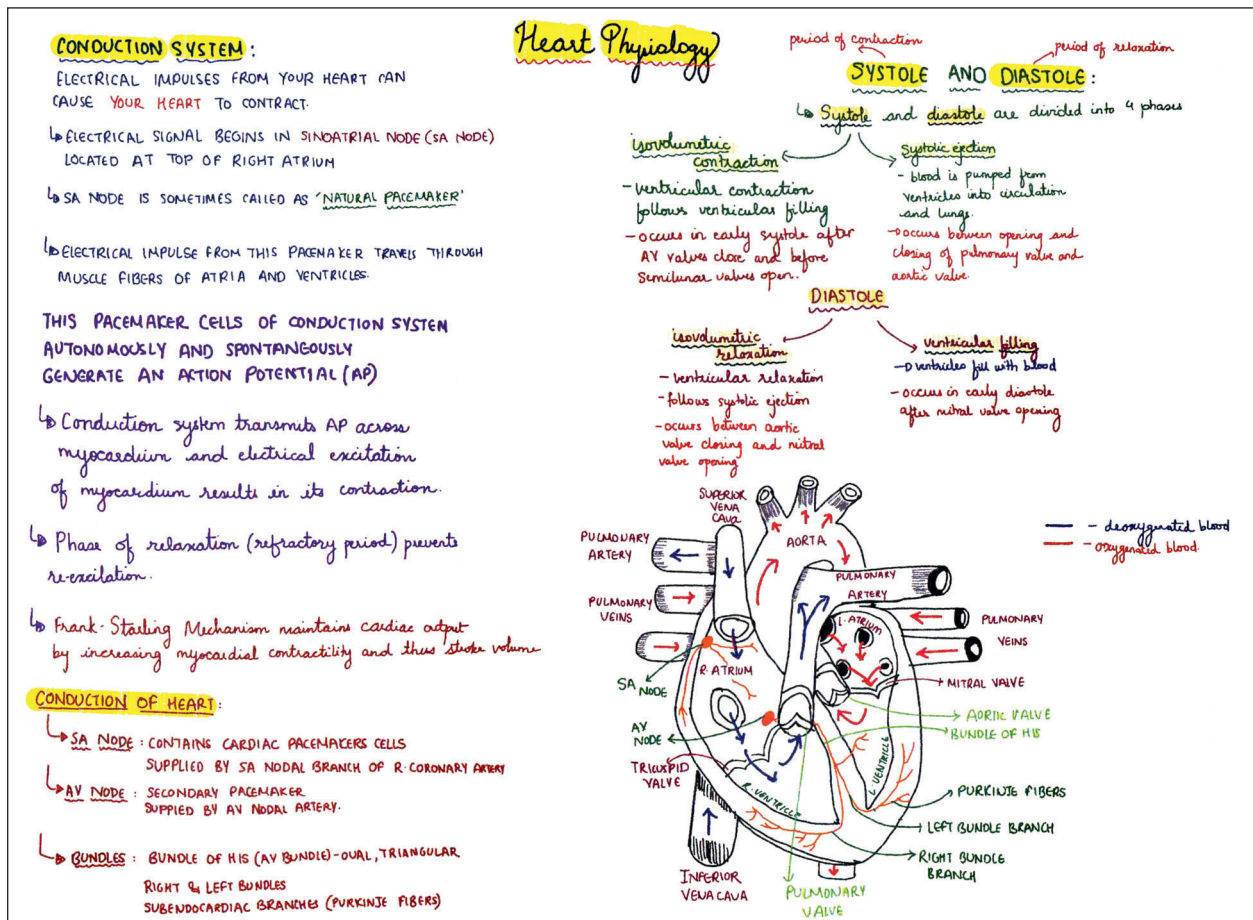 Heart Physiology
CONDUCTION SYSTEM:
ELECTRICAL IMPULSES FROM YOUR HEART CAN
CAUSE YOUR HEART TO CONTRACT.
↳ ELECTRICAL SIGNAL BEGINS IN SINOATRIAL NODE (SA NODE)
LOCATED AT TOP OF RIGHT ATRIUM
↳ SA NODE IS SOMETIMES CALLED AS 'NATURAL PACEMAKER'
↳ ELECTRICAL IMPULSE FROM THIS PACEMAKER TRAVELS THROUGH
MUSCLE FIBERS OF ATRIA AND VENTRICLES.
THIS PACEMAKER CELLS OF CONDUCTION SYSTEM
AUTONOMOUSLY AND SPONTANGOUSLY
GENERATE AN ACTION POTENTIAL (AP)
↳ Conduction system transmits AP across
myocardium and electrical excitation
of myocardium results in its contraction.
↳ Phase of relaxation (refractory period) prevents
re-excitation.
↳ Frank-Starling Mechanism maintains cardiac output
by increasing myocardial contractility and thus stroke volume
CONDUCTION OF HEART:
→ SA NODE : CONTAINS CARDIAC PACEMAKERS CELLS
SUPPLIED BY SA NODAL BRANCH OF R. CORONARY ARTERY
→ AV NODE : SECONDARY PACEMAKER
SUPPIED BY AV NODAL ARTERY.
→ BUNDLES : BUNDLE OF HIS (AV BUNDLE) - OVAL, TRIANGULAR
RIGHT & LEFT BUNDLES
SUBENDOCARDIAC BRANCHES (PURKINJE FIBERS)
period of contraction
period of relaxation
SYSTOLE AND DIASTOLE:
↳ Systole and diastole are divided into 4 phases
isovolumetric
contraction
- ventricular contraction
follows ventricular filling
- occurs in early systole after
AV valves close and before
semilunar valves open.
Systolic ejection
- blood is pumped from
ventricles into circulation
and lungs.
- occurs between opening and
closing of pulmonary valve and
aortic valve.
DIASTOLE
isovolumetric
relaxation
- ventricular relaxation
- follows systolic ejection
- occurs between aortic
valve closing and mitral
valve opening
ventricular filling
- ventricles fill with blood
- occurs in early diastole
after mitral valve opening
- deoxygenated blood
- oxygenated blood.
SUPERIOR
VENA
CAVA
PULMONARY
ARTERY
PULMONARY
VEINS
AORTA
PULMONARY
ARTERY
L. ATRIUM
PULMONARY
VEINS
R. ATRIUM
SA
NODE
MITRAL VALVE
AORTIC VALVE
BUNDLE OF HIS
AV
NODE
TRICUSPID
VALVE
R. VENTRICLE
L. VENTRICLE
PURKINJE FIBERS
LEFT BUNDLE BRANCH
RIGHT BUNDLE
BRANCH
INFERIOR
VENA CAVA
PULMONARY
VALVE